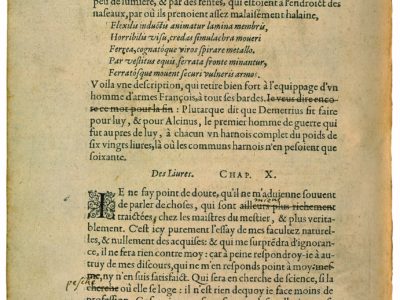 peu de lumiere, & par des fentes, qui estoient à l'endroict des
naseaux, par où ils prenoient assez malaisément halaine,
Flexilis inductis animatur lamina membris,
Horribilis visu, credas simulachra moueri
Ferrea, cognatóque viros spirare metallo.
Par vestitus equis, ferrata fronte minantur,
Ferratósque mouent securi vulneris armos.
Voila vne description, qui retire bien fort à l'equippage d'vn
homme d'armes François, à tout ses bardes. Ie veus dire enco-
re ce mot pour la fin : Plutarque dit que Demetrius fit faire
pour luy, & pour Alcinus, le premier homme de guerre qui
fut aupres de luy, à chacun vn harnois complet du poids de
six vingts liures, là où les communs harnois n'en pesoient que
soixante.
Des Liures. CHAP. X.
mieus
IE ne fay point de doute, qu'il ne m'aduienne souuent
de parler de choses, qui sont ailleurs plus richement
traictées, chez les maistres du mestier, & plus verita-
blement. C'est icy purement l'essay de mes facultez natu-
relles, & nullement des acquises: & qui me surprẽdra d'ignoran-
ce, il ne fera rien contre moy: car à peine respondroy-ie à au-
truy de mes discours, qui ne m'en responds point à moy, mes-
me, ny n'en suis satisfaict. Qui sera en cherche de science, si la
pesche
cherche où elle se loge : il n'est rien dequoy ie face moins de